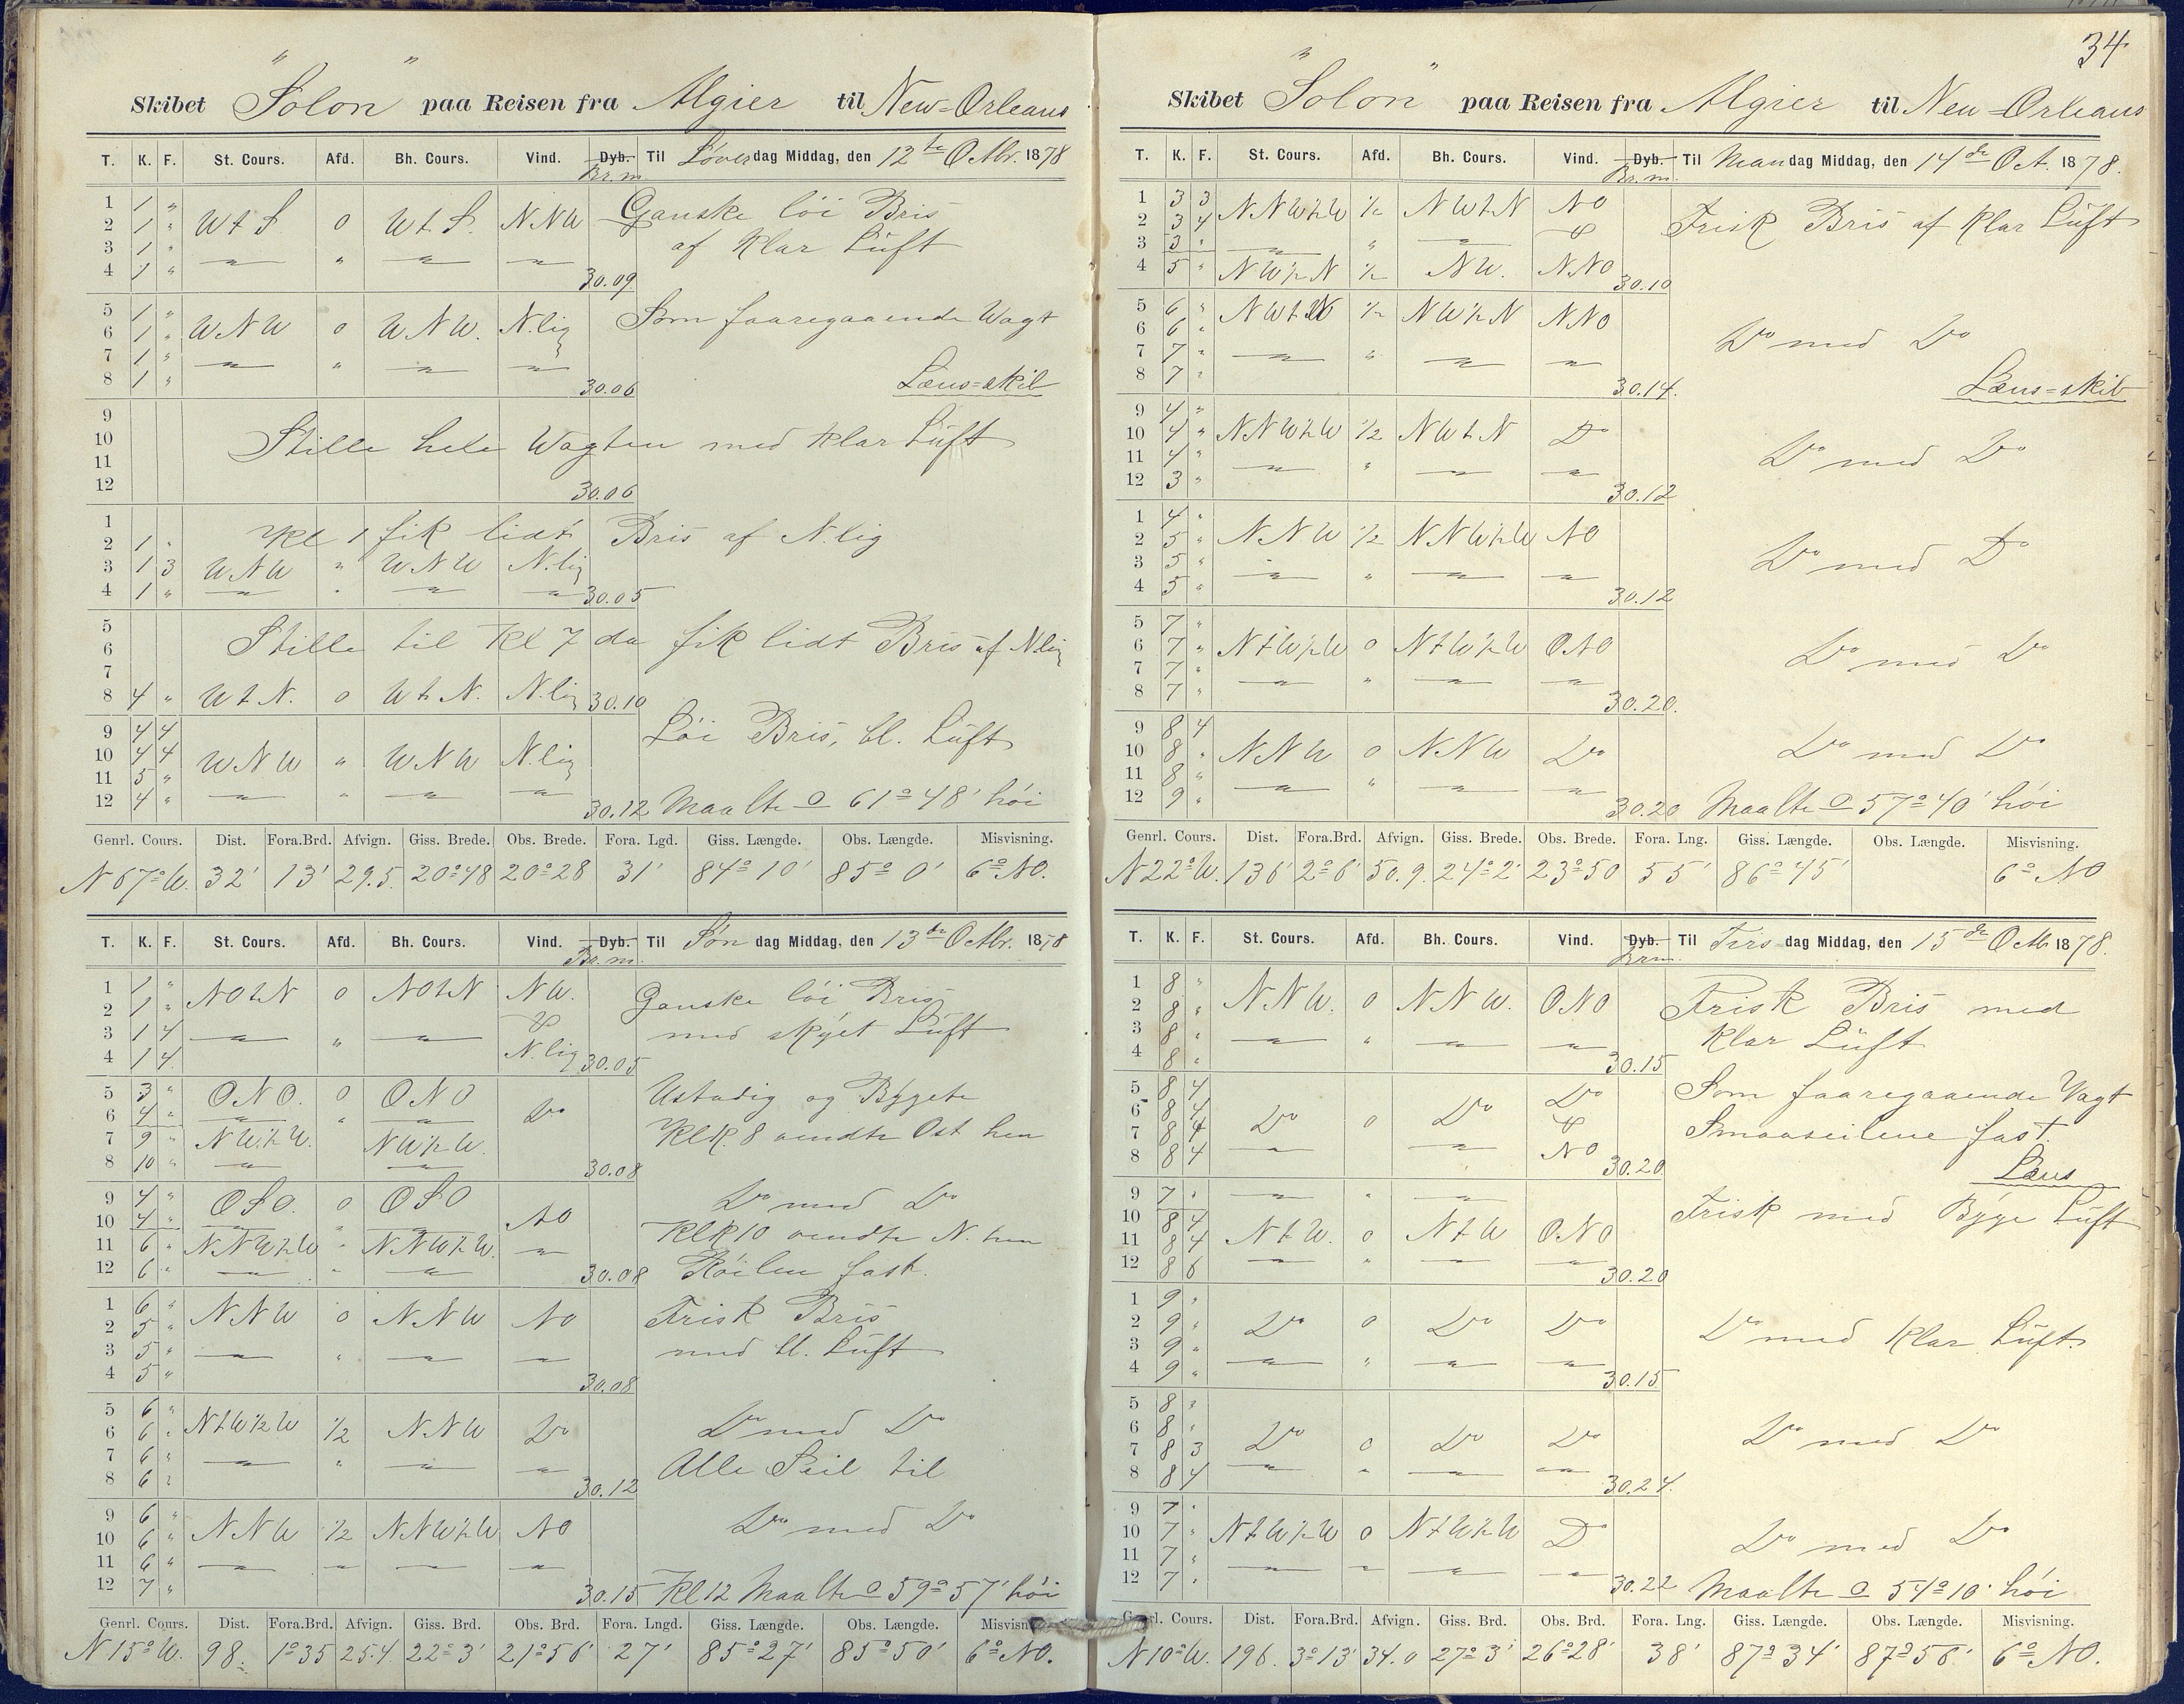 Skibet "Solon" paa Reisen fra Algier til New-Orleans
T. K. F. St. Cours. Afd. Bh. Cours. Vind. Dyb. Til Løverdag Middag, den 12te Octbr. 1878
Br.m.
1 1 " Ganske löi Bris
2 1 " W t S 0 W t S. NNW
3 1 " af klar Luft
4 1 " " " " " 30.09
5 1 " Som faaregaaende Vagt
6 1 " WNW 0 WNW. N.lig
7 1 " " " " "
8 1 " 30.06 Læns=skib
9
10 Stille hele Wagten med klar Luft
11
12 30.06
1 Kl 1 fik lidt Bris af N.lig
2 1 "
3 1 3 WNW " WNW N.lig
4 1 " " " " " 30.05
5
6 Stille til Kl 7 da fik lidt Bris af N.lig
7
8 4 " W t N. 0 W t N. N.lig 30.10
9 4 4 Löi Bris, bl. Luft
10 4 4 WNW " WNW N.lig
11 5 "
12 4 " " " " " 30.12 Maalte 61° 48' höi
Genrl. Cours. Dist. Fora.Brd. Afvign. Giss. Brede. Obs. Brede. Fora. Lgd. Giss. Længde. Obs. Længde. Misvisning.
N 67° W. 32' 13' 29.5. 20°48 20°28 31' 84° 10' 85° 0' 6° NO.
T. K. F. St. Cours. Afd. Bh. Cours. Vind. Dyb. Til Søndag Middag, den 13de Octbr. 1878
Br.m.
1 1 " NOtN 0 NOtN NW. Ganske löi Bris
2 1 "
3 1 4 " " " med skyet Luft
4 1 4 N.lig 30.05
5 3 " ONO. 0 ONO Ustadig og Bygete
6 4 " " " " Do
7 9 " NW½W. NW½W. Klk. 8 vendte Ost hen
8 10 " " " 30.08
9 4 " OSO. 0 OSO Do med Do
10 4 " " " " NO Klk 10 vendte N. hen
11 6 " NNW½W " NNW½W. "
12 6 " " " " 30.08 Röilen fast.
1 6 " NNW 0 NNW NO Frisk Bris
2 5 "
3 5 " " " " " med bl. Luft
4 5 " 30.08
5 6 " NtW½W ½ NNW Do Do med Do
6 6 "
7 6 " " " " " Alle Seil til
8 6 " 30.12
9 6 " NNW ½ NNW½W NO Do med Do
10 6 "
11 6 " " " " "
12 7 " 30.15 Kl 12 Maalte 59° 57' höi
Genrl. Cours. Dist. Fora.Brd. Afvign. Giss. Brd. Obs. Brd. Fora. Lngd. Giss. Længde. Obs. Længde. Misvisn
N 15° W. 98. 1°35 25.4. 22° 3' 21°56' 27' 85° 27' 85° 50' 6° NO.
34
Skibet "Solon" paa Reisen fra Algier til New-Orleans
T. K. F. St. Cours. Afd. Bh. Cours. Vind. Dyb. Til Mandag Middag, den 14de Oct. 1878.
Br.m.
1 3 3 NNW½W ½ NWtN NO Frisk Bris af klar Luft
2 3 4
3 3 " " " "
4 5 " NW½N ½ NW. NNO 30.10
5 6 " NWtN ½ NW½N NNO
6 6 " Do med Do
7 7 " " " " "
8 7 " 30.14. Læns=skib
9 4 "
10 4 " NNW½W ½ NWtN Do Do med Do
11 4 " " " " "
12 3 " 30.12
1 4 "
2 5 " NNW ½ NNW½W NO Do med Do
3 5 " " " " "
4 5 " 30.12
5 7 "
6 7 " NtW½W 0 NtW½W ONO Do med Do
7 7 " " " " "
8 7 " 30.20.
9 8 4
10 8 " NNW 0 NNW Do Do med Do
11 8 " " " " "
12 9 " 30.20 Maalte 57° 40' höi
Genrl. Cours. Dist. Fora.Brd. Afvign. Giss. Brede. Obs. Brede. Fora. Lng. Giss. Længde. Obs. Længde. Misvisning.
N 22° W. 136' 2° 6' 50.9. 24° 2' 23°50 55' 86° 45' 6° NO
T. K. F. St. Cours. Afd. Bh. Cours. Vind. Dyb. Til Tirsdag Middag, den 15de Octb 1878.
Br.m.
1 8 " NNW. 0 NNW. ONO Frisk Bris med
2 8 "
3 8 " " " " " klar Luft
4 8 " 30.15
5 8 4 Do Som faaregaaende Vagt
6 8 4 Do 0 Do
7 8 4 Smaaseilene fast.
8 8 4 " " NO 30.20 Læns
9 7 " " " " Frisk med Byge Luft
10 8 4
11 8 4 NtW. 0 NtW ONO
12 8 6 " " " " 30.20
1 9 "
2 9 " Do 0 Do Do Do med klar Luft.
3 9 " " " " "
4 9 " 30.15
5 8 "
6 8 " Do med Do
7 8 3 Do 0 Do Do
8 8 4 " " " " 30.24.
9 7 "
10 7 " NtW½W 0 NtW½W Do Do med Do
11 7 " " " " "
12 7 " 30.22 Maalte 54° 10' höi
Genrl. Cours. Dist. Fora.Brd. Afvign. Giss. Brd. Obs. Brd. Fora. Lng. Giss. Længde. Obs. Længde. Misvisning.
N 10° W. 196. 3° 13' 34.0 27° 3' 26°28' 38' 87° 34' 87° 56' 6° NO.